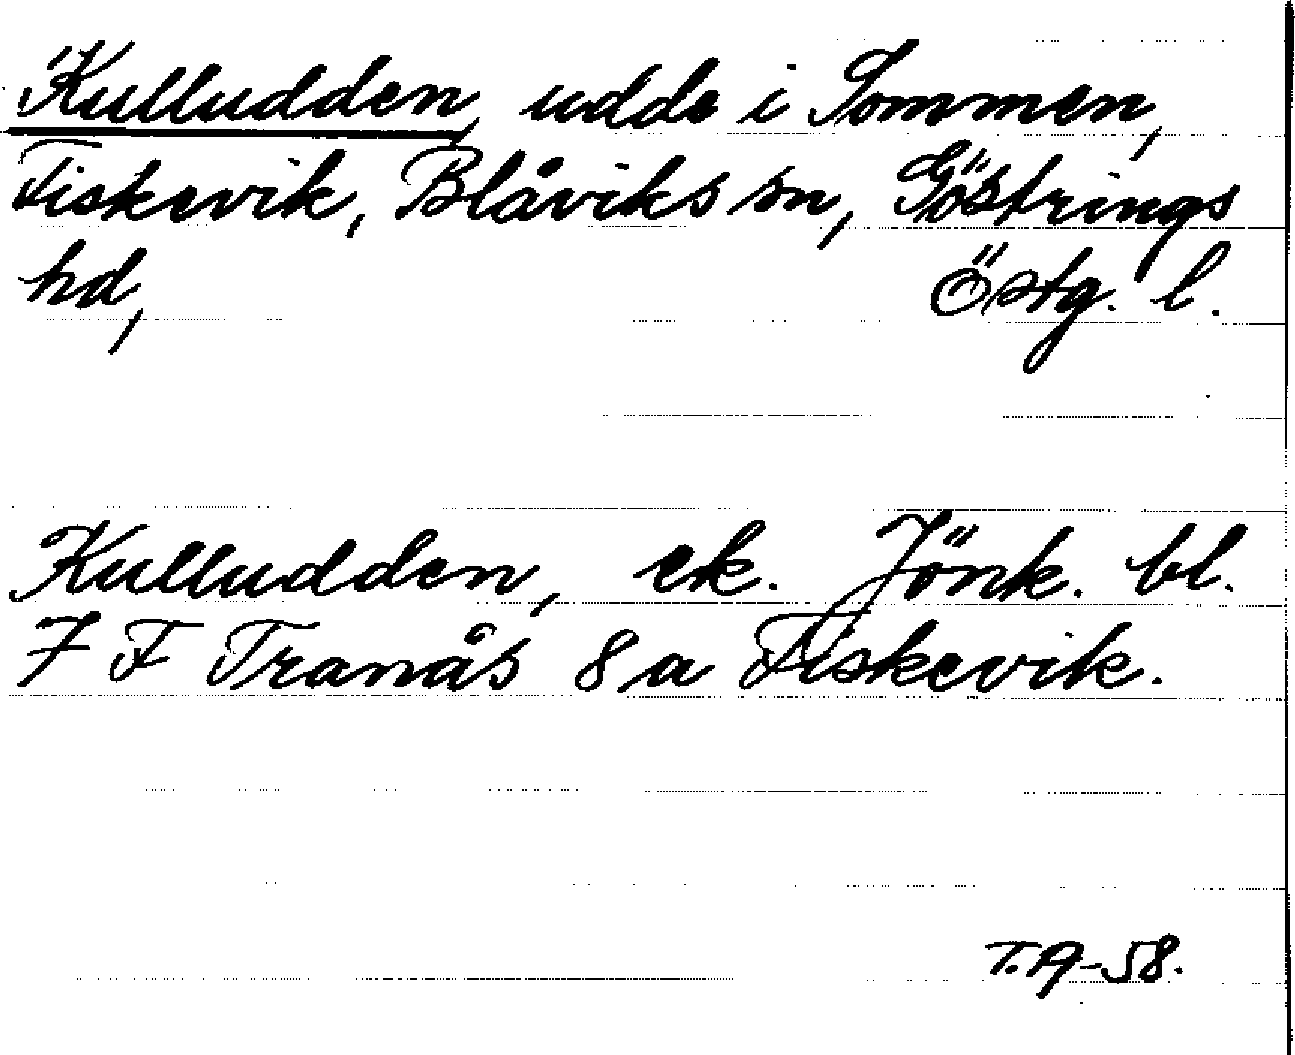 Kulludden, udde i Sommen,
Fiskevik, Blåviks sn, Göstrings
hd, Östg. l.
Kulludden, ek. Jönk. bl.
7 F Tranås 8 a Fiskevik.
T.A-58.